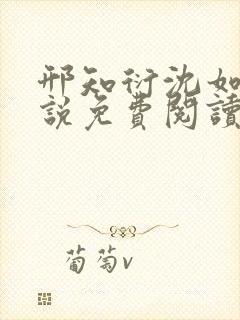 邢知衍沈如
說免費閱讀
葡萄v